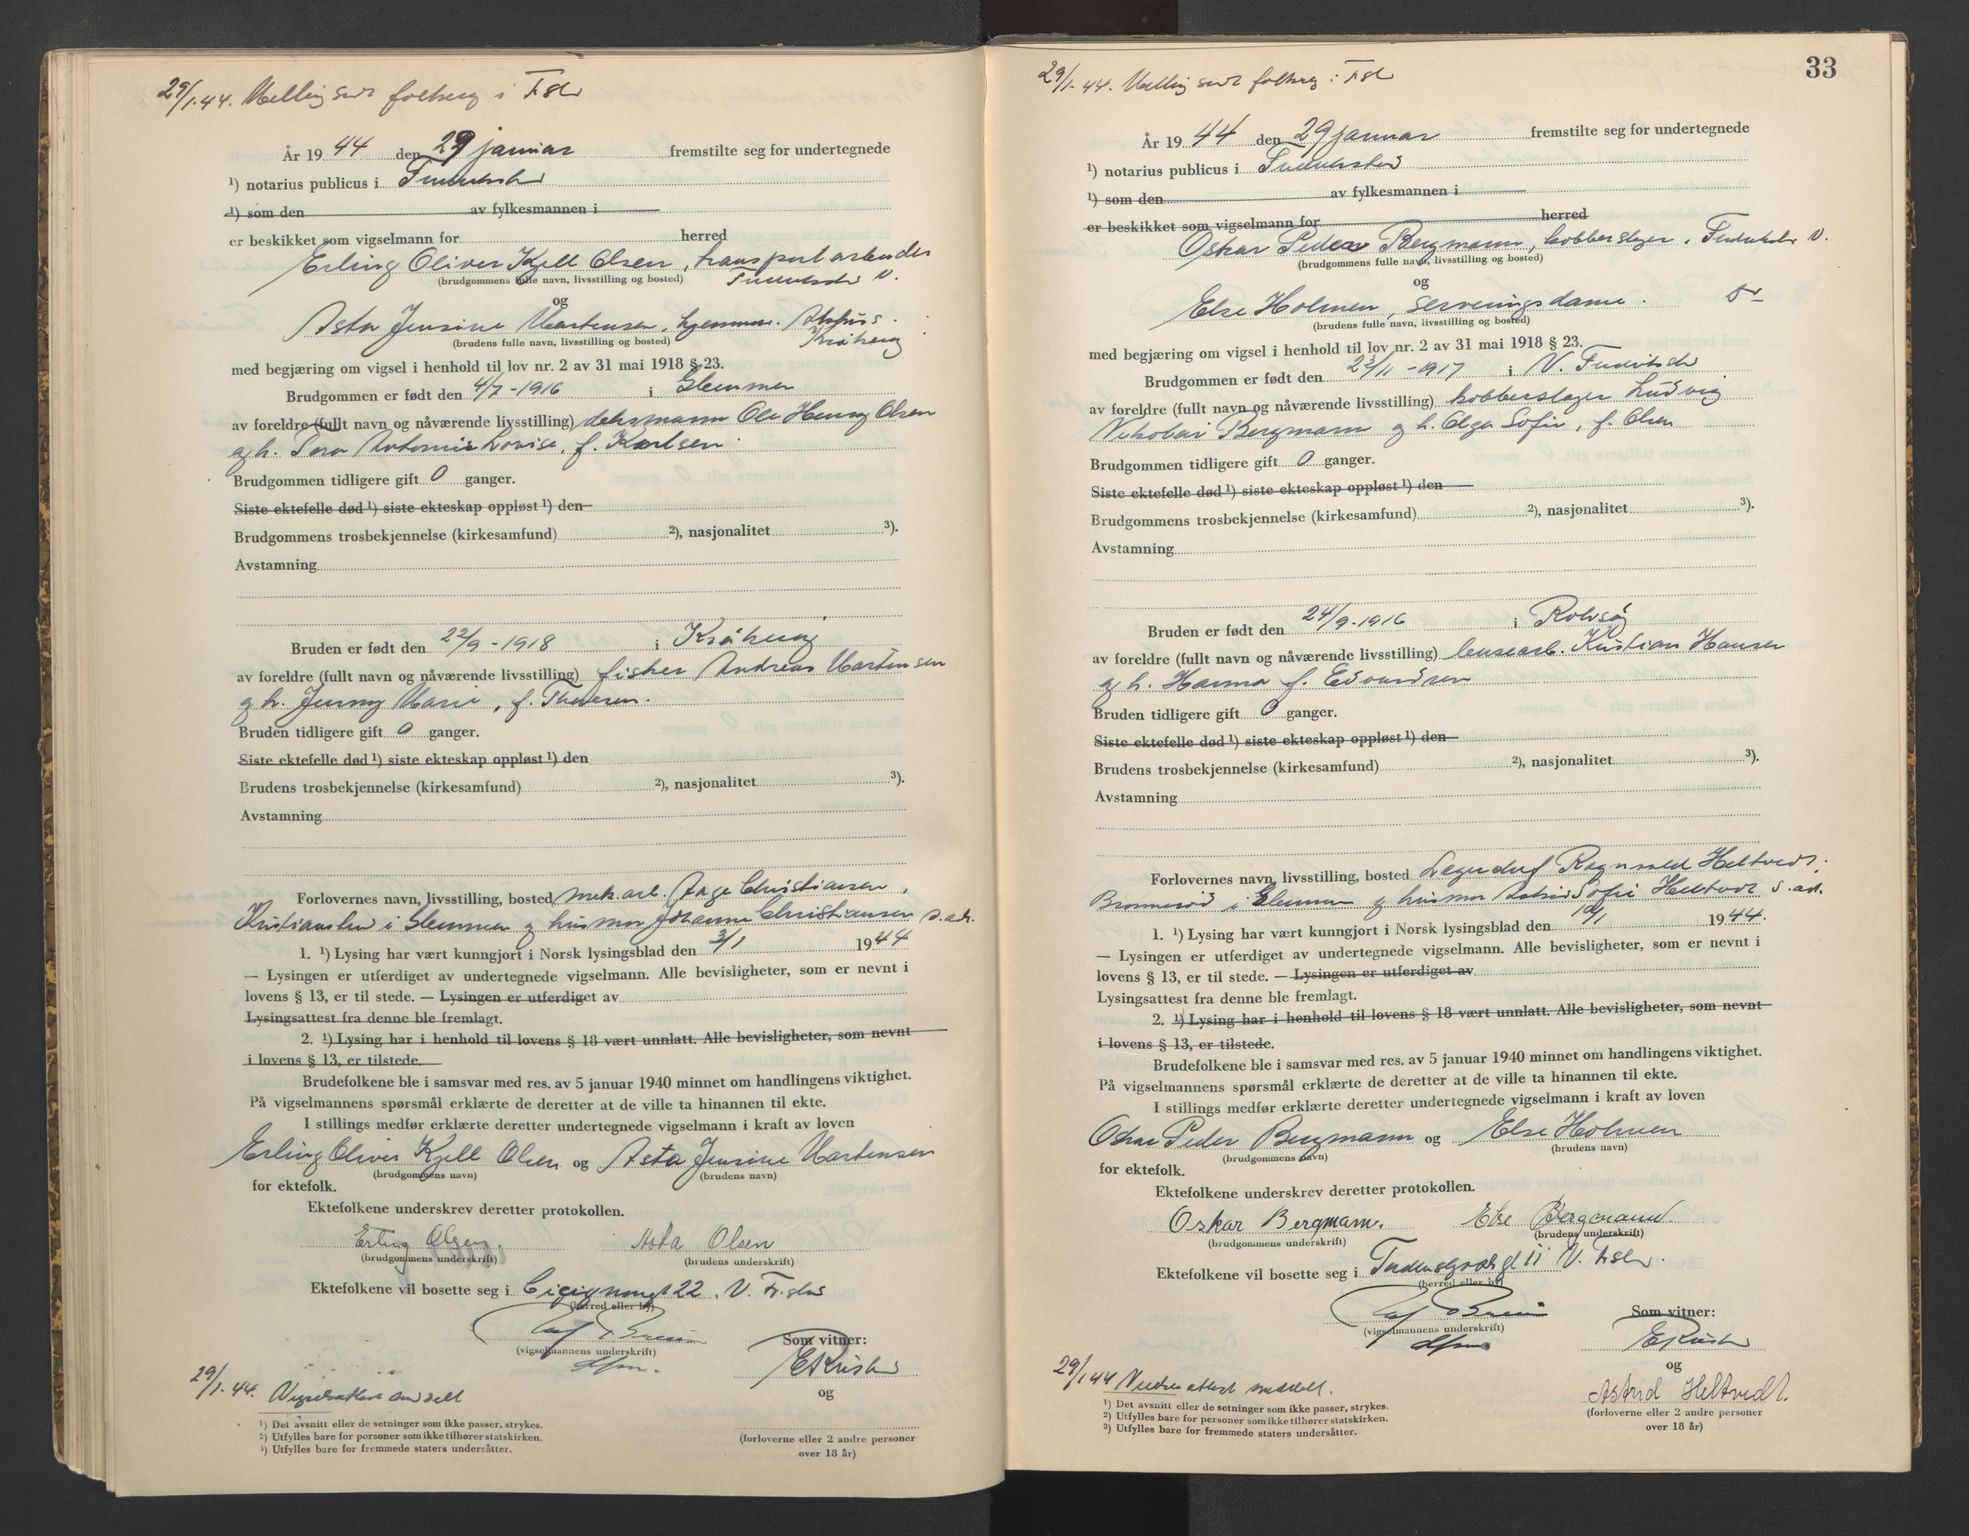 29/1.44. Melding sendt folkereg i F.stad
År 1944 den 29 januar fremstilte seg for undertegnede
¹) notarius publicus i Fredrikstad
¹) som den av fylkesmannen i
er beskikket som vigselmann for herred
Erling Oliver Kjell Olsen, transportarbeider
(brudgommens fulle navn, livsstilling og bosted) Fredrikstad V.
og
Asta Jensine Martensen, hjemmev.
(brudens fulle navn, livsstilling og bosted) Kråkerøy
med begjæring om vigsel i henhold til lov nr. 2 av 31 mai 1918 § 23.
Brudgommen er født den 4/7-1916 i Glemmen
av foreldre (fullt navn og nåværende livsstilling) Ole Henry Olsen
og h. Tora Antonie Lovise, f. Karlsen
Brudgommen tidligere gift 0 ganger.
Siste ektefelle død ¹) siste ekteskap oppløst ¹) den
Brudgommens trosbekjennelse (kirkesamfund) ²), nasjonalitet ³).
Avstamning
Bruden er født den 22/9-1918 i Kråkerøy
av foreldre (fullt navn og nåværende livsstilling) fisker Andreas Martensen
og h. Jenny Marie, f. Thoresen.
Bruden tidligere gift 0 ganger.
Siste ektefelle død ¹) siste ekteskap oppløst ¹) den
Brudens trosbekjennelse (kirkesamfund) ²), nasjonalitet ³).
Avstamning
Forlovernes navn, livsstilling, bosted mek. arb. Aage Christiansen,
Kristiansten i Glemmen og husmor Johanne Christiansen s. adr.
1. ¹) Lysing har vært kunngjort i Norsk lysingsblad den 3/1 1944
— Lysingen er utferdiget av undertegnede vigselmann. Alle bevisligheter, som er nevnt i
lovens § 13, er til stede. — Lysingen er utferdiget av
Lysingsattest fra denne ble fremlagt.
2. ¹) Lysing har i henhold til lovens § 18 vært unnlatt. Alle bevisligheter, som nevnt
i lovens § 13, er tilstede.
Brudefolkene ble i samsvar med res. av 5 januar 1940 minnet om handlingens viktighet.
På vigselmannens spørsmål erklærte de deretter at de ville ta hinannen til ekte.
I stillings medfør erklærte deretter undertegnede vigselmann i kraft av loven
Erling Oliver Kjell Olsen og Asta Jensine Martensen
(brudgommens navn) (brudens navn)
for ektefolk.
Ektefolkene underskrev deretter protokollen.
Erling Olsen. Asta Olsen
(brudgommens underskrift) (brudens underskrift)
Ektefolkene vil bosette seg i 22. V. Fr.stad
(herred eller by)
Som vitner:
(vigselmannens underskrift)
29/1.44. Vigselsattest
og
¹) Det avsnitt eller de setninger som ikke passer, strykes.
²) Utfylles bare for personer som ikke tilhører statskirken.
³) Utfylles bare for fremmede staters undersåtter.
(forloverne eller 2 andre personer
over 18 år)
33
29/1.44. Melding sendt folkereg i F.stad
År 1944 den 29 januar fremstilte seg for undertegnede
¹) notarius publicus i Fredrikstad
¹) som den av fylkesmannen i
er beskikket som vigselmann for herred
Oskar Peder Bergmann, kobberslager, Fredrikstad V.
(brudgommens fulle navn, livsstilling og bosted)
og
Else Holmen, serveringsdame.
(brudens fulle navn, livsstilling og bosted)
med begjæring om vigsel i henhold til lov nr. 2 av 31 mai 1918 § 23.
Brudgommen er født den 23/11-1917 i V. Fredrikstad
av foreldre (fullt navn og nåværende livsstilling) kobberslager Ludvig
Nikolai Bergmann og h. Olga Sofie, f. Olsen
Brudgommen tidligere gift 0 ganger.
Siste ektefelle død ¹) siste ekteskap oppløst ¹) den
Brudgommens trosbekjennelse (kirkesamfund) ²), nasjonalitet ³).
Avstamning
Bruden er født den 24/9-1916 i Rolvsøy
av foreldre (fullt navn og nåværende livsstilling) Kristian Hansen
og h. Hanna f. Edvardsen
Bruden tidligere gift 0 ganger.
Siste ektefelle død ¹) siste ekteskap oppløst ¹) den
Brudens trosbekjennelse (kirkesamfund) ²), nasjonalitet ³).
Avstamning
Forlovernes navn, livsstilling, bosted Ragnvald Heltvedt,
i Glemmen og husmor Astrid Sofie Heltvedt s. adr.
1. ¹) Lysing har vært kunngjort i Norsk lysingsblad den 10/1 1944.
— Lysingen er utferdiget av undertegnede vigselmann. Alle bevisligheter, som er nevnt i
lovens § 13, er til stede. — Lysingen er utferdiget av
Lysingsattest fra denne ble fremlagt.
2. ¹) Lysing har i henhold til lovens § 18 vært unnlatt. Alle bevisligheter, som nevnt
i lovens § 13, er tilstede.
Brudefolkene ble i samsvar med res. av 5 januar 1940 minnet om handlingens viktighet.
På vigselmannens spørsmål erklærte de deretter at de ville ta hinannen til ekte.
I stillings medfør erklærte deretter undertegnede vigselmann i kraft av loven
Oskar Peder Bergmann og Else Holmen
(brudgommens navn) (brudens navn)
for ektefolk.
Ektefolkene underskrev deretter protokollen.
Oskar Bergmann. Else Bergmann.
(brudgommens underskrift) (brudens underskrift)
Ektefolkene vil bosette seg i 11 V. F.stad.
(herred eller by)
Som vitner:
(vigselmannens underskrift)
og
29/1 44 meddelt.
Astrid Heltvedt.
¹) Det avsnitt eller de setninger som ikke passer, strykes.
²) Utfylles bare for personer som ikke tilhører statskirken.
³) Utfylles bare for fremmede staters undersåtter.
(forloverne eller 2 andre personer
over 18 år)